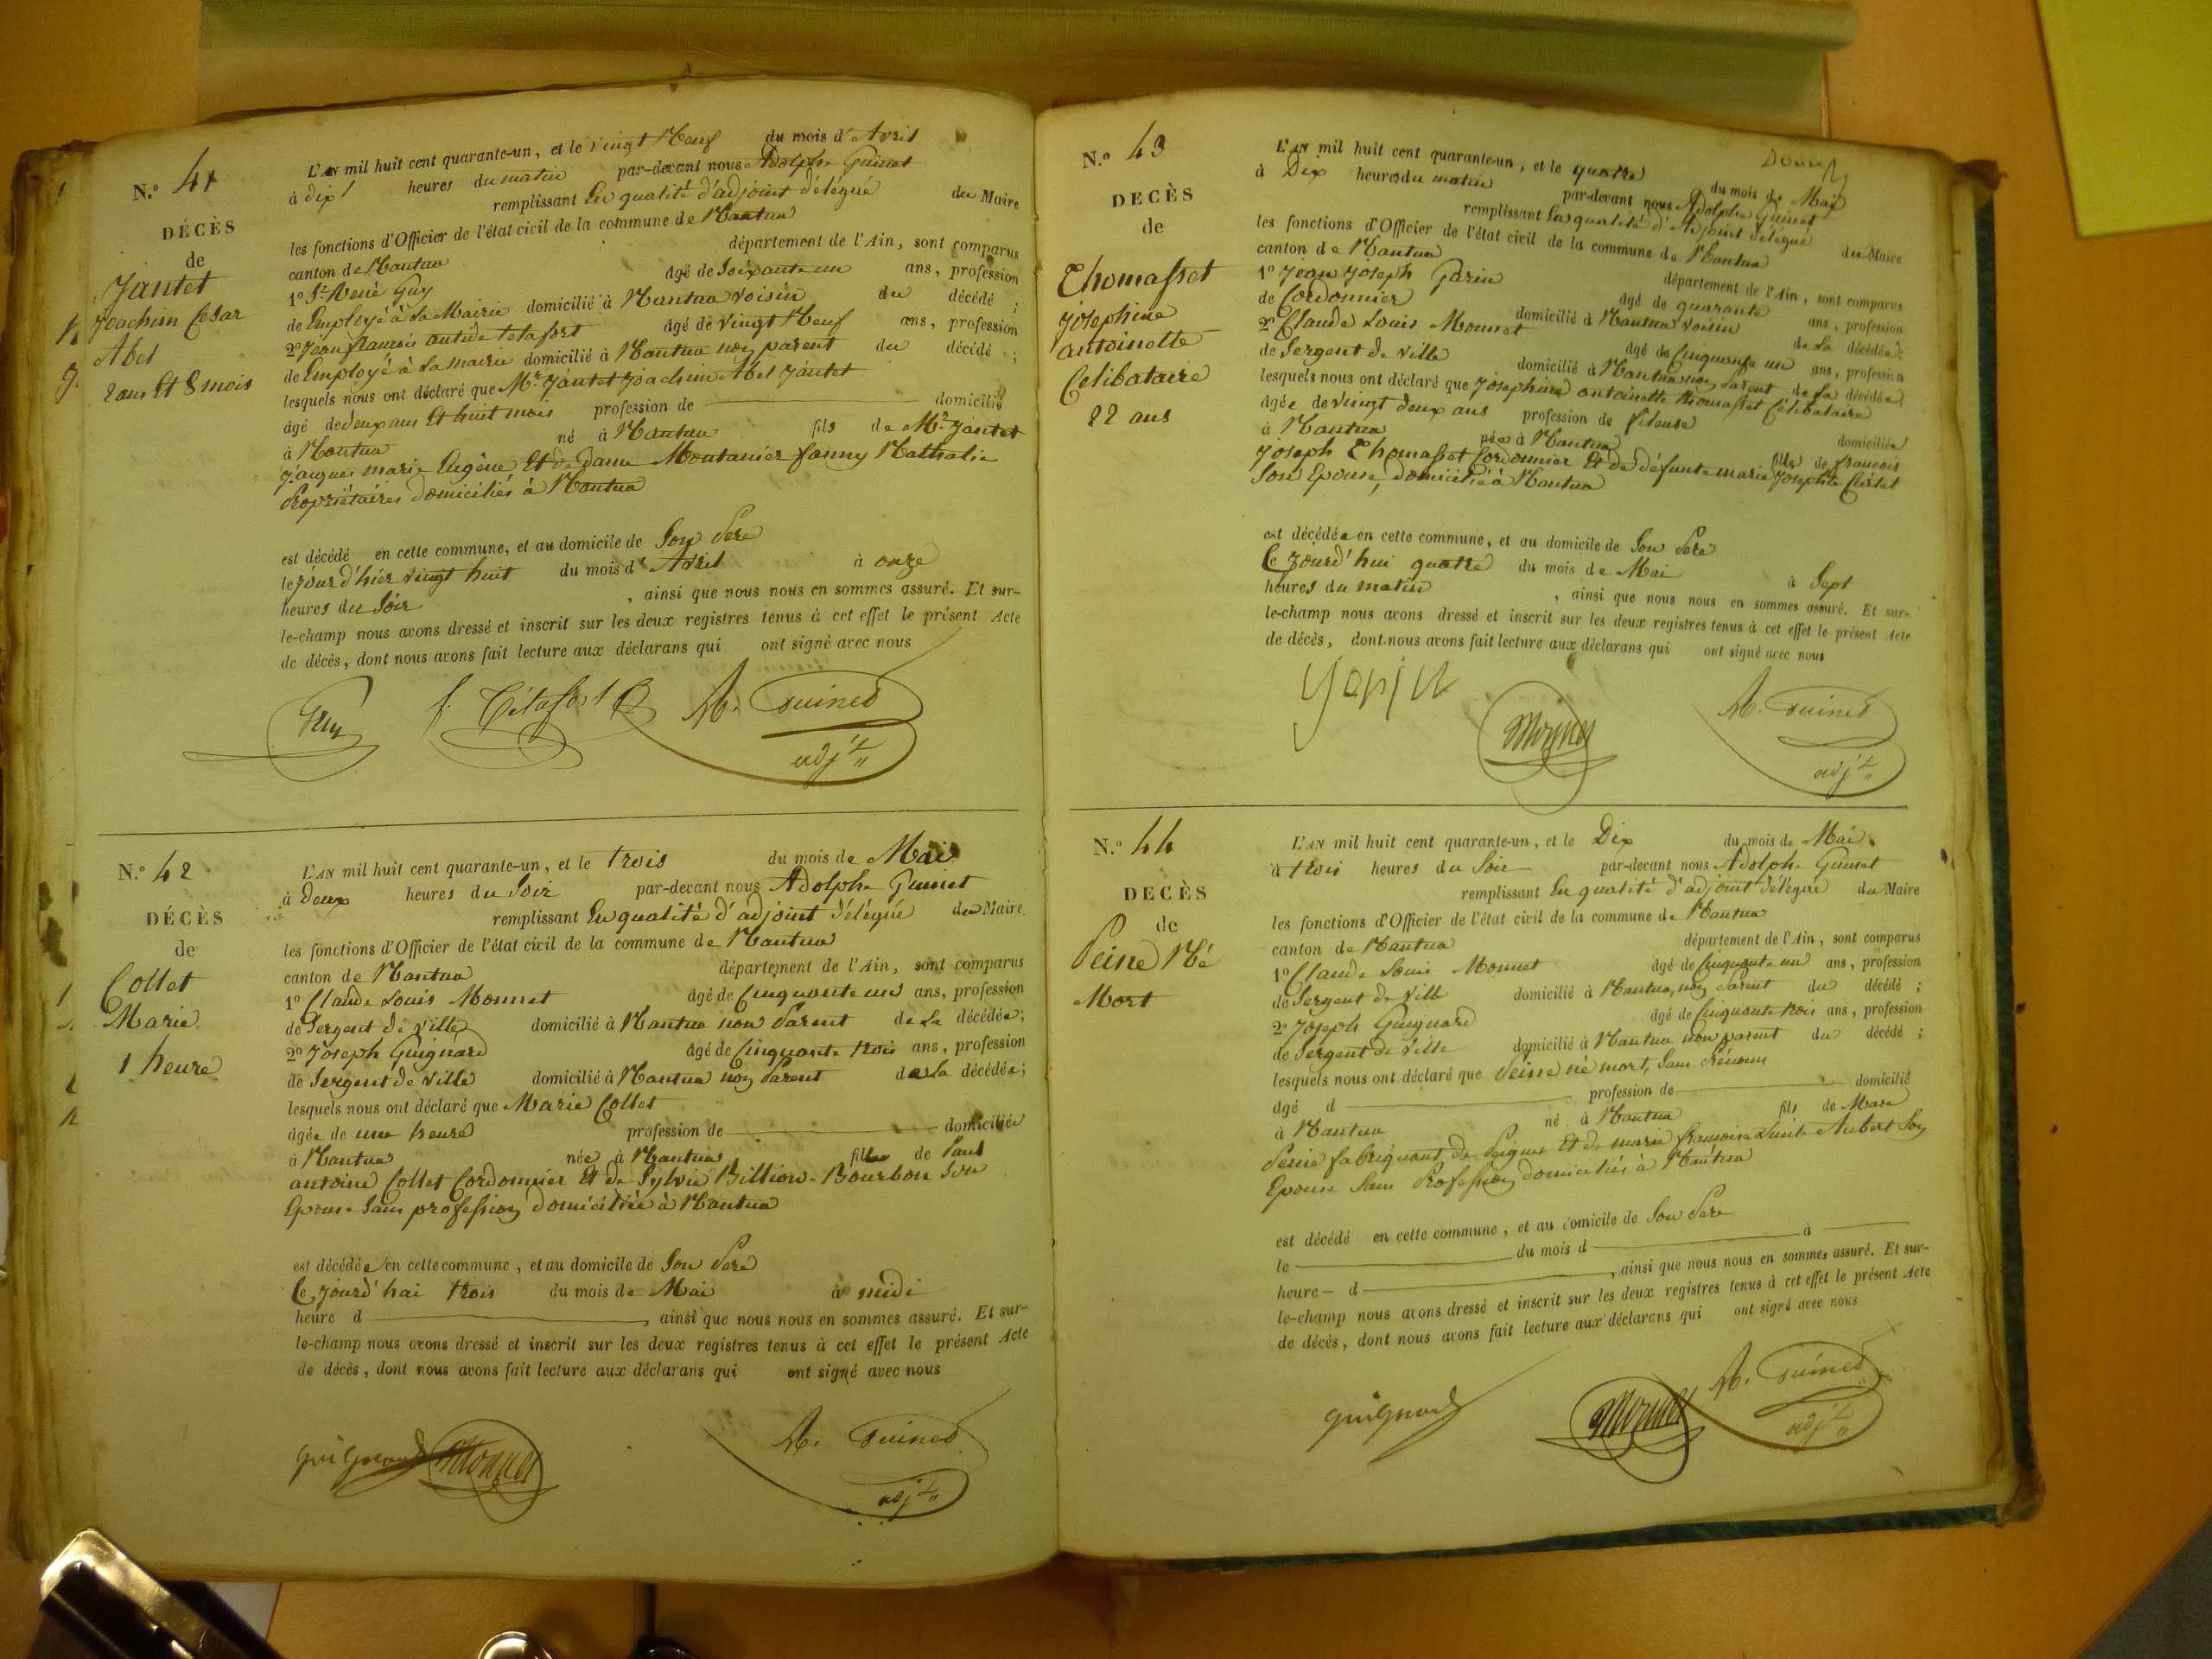 N.º 41
DÉCÈS
de
Jantet
Joachim Cesar
Abel
2 ans Et 8 mois
L'AN mil huit cent quarante-un, et le vingt Neuf du mois d'Avril
à dix heures du matin par-devant nous Adolphe Guinet
remplissant En qualité d'adjoint délégué du Maire
les fonctions d'Officier de l'état civil de la commune de Nantua
canton de Nantua département de l'Ain, sont comparus
1º St René Guy âgé de Soixante un ans, profession
de Employé à La Mairie domicilié à Nantua voisin du décédé ;
2º Jean françois antide tetafort âgé de vingt Neuf ans, profession
de Employé à La mairie domicilié à Nantua non parent du décédé ;
lesquels nous ont déclaré que Mr. Jantet Joachim Abel Jantet
âgé de deux ans Et huit mois profession de domicilié
à Nantua né à Nantua fils de Mr. Jantet
Jacques marie Eugène Et de dame Montanier fanny Nathalie
Propriétaires domiciliés à Nantua
est décédé en cette commune, et au domicile de Son Pere
le jour d'hier vingt huit du mois d'Avril à onze
heures du Soir , ainsi que nous nous en sommes assuré. Et sur-
le-champ nous avons dressé et inscrit sur les deux registres tenus à cet effet le présent Acte
de décès, dont nous avons fait lecture aux déclarans qui ont signé avec nous
Guy f. Tétafort A. Guinet
adjt
N.º 42
DÉCÈS
de
Collet
Marie
1 heure
L'AN mil huit cent quarante-un, et le trois du mois de Mai
à Deux heures du Soir par-devant nous Adolphe Guinet
remplissant En qualité d'adjoint délégué du Maire
les fonctions d'Officier de l'état civil de la commune de Nantua
canton de Nantua département de l'Ain, sont comparus
1º Claude Louis Monnet âgé de Cinquante un ans, profession
de Sergent de ville domicilié à Nantua non Parent de La décédée ;
2º Joseph Guignard âgé de Cinquante trois ans, profession
de Sergent de ville domicilié à Nantua non Parent de La décédée ;
lesquels nous ont déclaré que Marie Collet
âgée de une heure profession de domiciliée
à Nantua née à Nantua fille de Paul
antoine Collet Cordonnier Et de Sylvie Billion-Bourbon Son
Epouse Sans profession domiciliée à Nantua
est décédée en cette commune, et au domicile de Son Pere
Ce jourd'hui trois du mois de Mai à midi
heure d , ainsi que nous nous en sommes assuré. Et sur-
le-champ nous avons dressé et inscrit sur les deux registres tenus à cet effet le présent Acte
de décès, dont nous avons fait lecture aux déclarans qui ont signé avec nous
guignard Monnet A. Guinet
adjt
N.º 43
DECÈS
de
Thomasset
Josephine
antoinette
Celibataire
22 ans
L'AN mil huit cent quarante-un, et le quatre du mois de Mai
à Dix heures du matin par-devant nous Adolphe Guinet
remplissant En qualité d'Adjoint délégué du Maire
les fonctions d'Officier de l'état civil de la commune de Nantua
canton de Nantua département de l'Ain, sont comparus
1º Jean Joseph Garin âgé de quarante ans, profession
de Cordonnier domicilié à Nantua voisin de La décédée ;
2º Claude Louis Monnet âgé de Cinquante un ans, profession
de Sergent de ville domicilié à Nantua non Parent de La décédée ;
lesquels nous ont déclaré que Josephine antoinette thomasset Célibataire
âgée de vingt deux ans profession de fileuse domiciliée
à Nantua née à Nantua fille de francois
Joseph Thomasset Cordonnier Et de défunte marie Josephte
Son Epouse, domicilié à Nantua
est décédée en cette commune, et au domicile de Son Pere
Ce jourd'hui quatre du mois de Mai à Sept
heures du matin , ainsi que nous nous en sommes assuré. Et sur-
le-champ nous avons dressé et inscrit sur les deux registres tenus à cet effet le présent Acte
de décès, dont nous avons fait lecture aux déclarans qui ont signé avec nous
Monnet A. Guinet
adjt
N.º 44
DECÈS
de
Peine Né
Mort
L'AN mil huit cent quarante-un, et le Dix du mois de Mai
à trois heures du Soir par-devant nous Adolphe Guinet
remplissant En qualité d'adjoint délégué du Maire
les fonctions d'Officier de l'état civil de la commune de Nantua
canton de Nantua département de l'Ain, sont comparus
1º Claude Louis Monnet âgé de Cinquante un ans, profession
de Sergent de ville domicilié à Nantua, non Parent du décédé ;
2º Joseph Guignard âgé de Cinquante trois ans, profession
de Sergent de ville domicilié à Nantua non parent du décédé ;
lesquels nous ont déclaré que Peine né mort, Sans Prénoms
âgé d profession de domicilié
à Nantua né à Nantua fils de Marc
Peine fabriquant de Peignes Et de marie francoise Aubert Son
Epouse Sans Profession domiciliés à Nantua
est décédé en cette commune, et au domicile de Son Pere
le du mois d à
heure d , ainsi que nous nous en sommes assuré. Et sur-
le-champ nous avons dressé et inscrit sur les deux registres tenus à cet effet le présent Acte
de décès, dont nous avons fait lecture aux déclarans qui ont signé avec nous
guignard Monnet A. Guinet
adjt